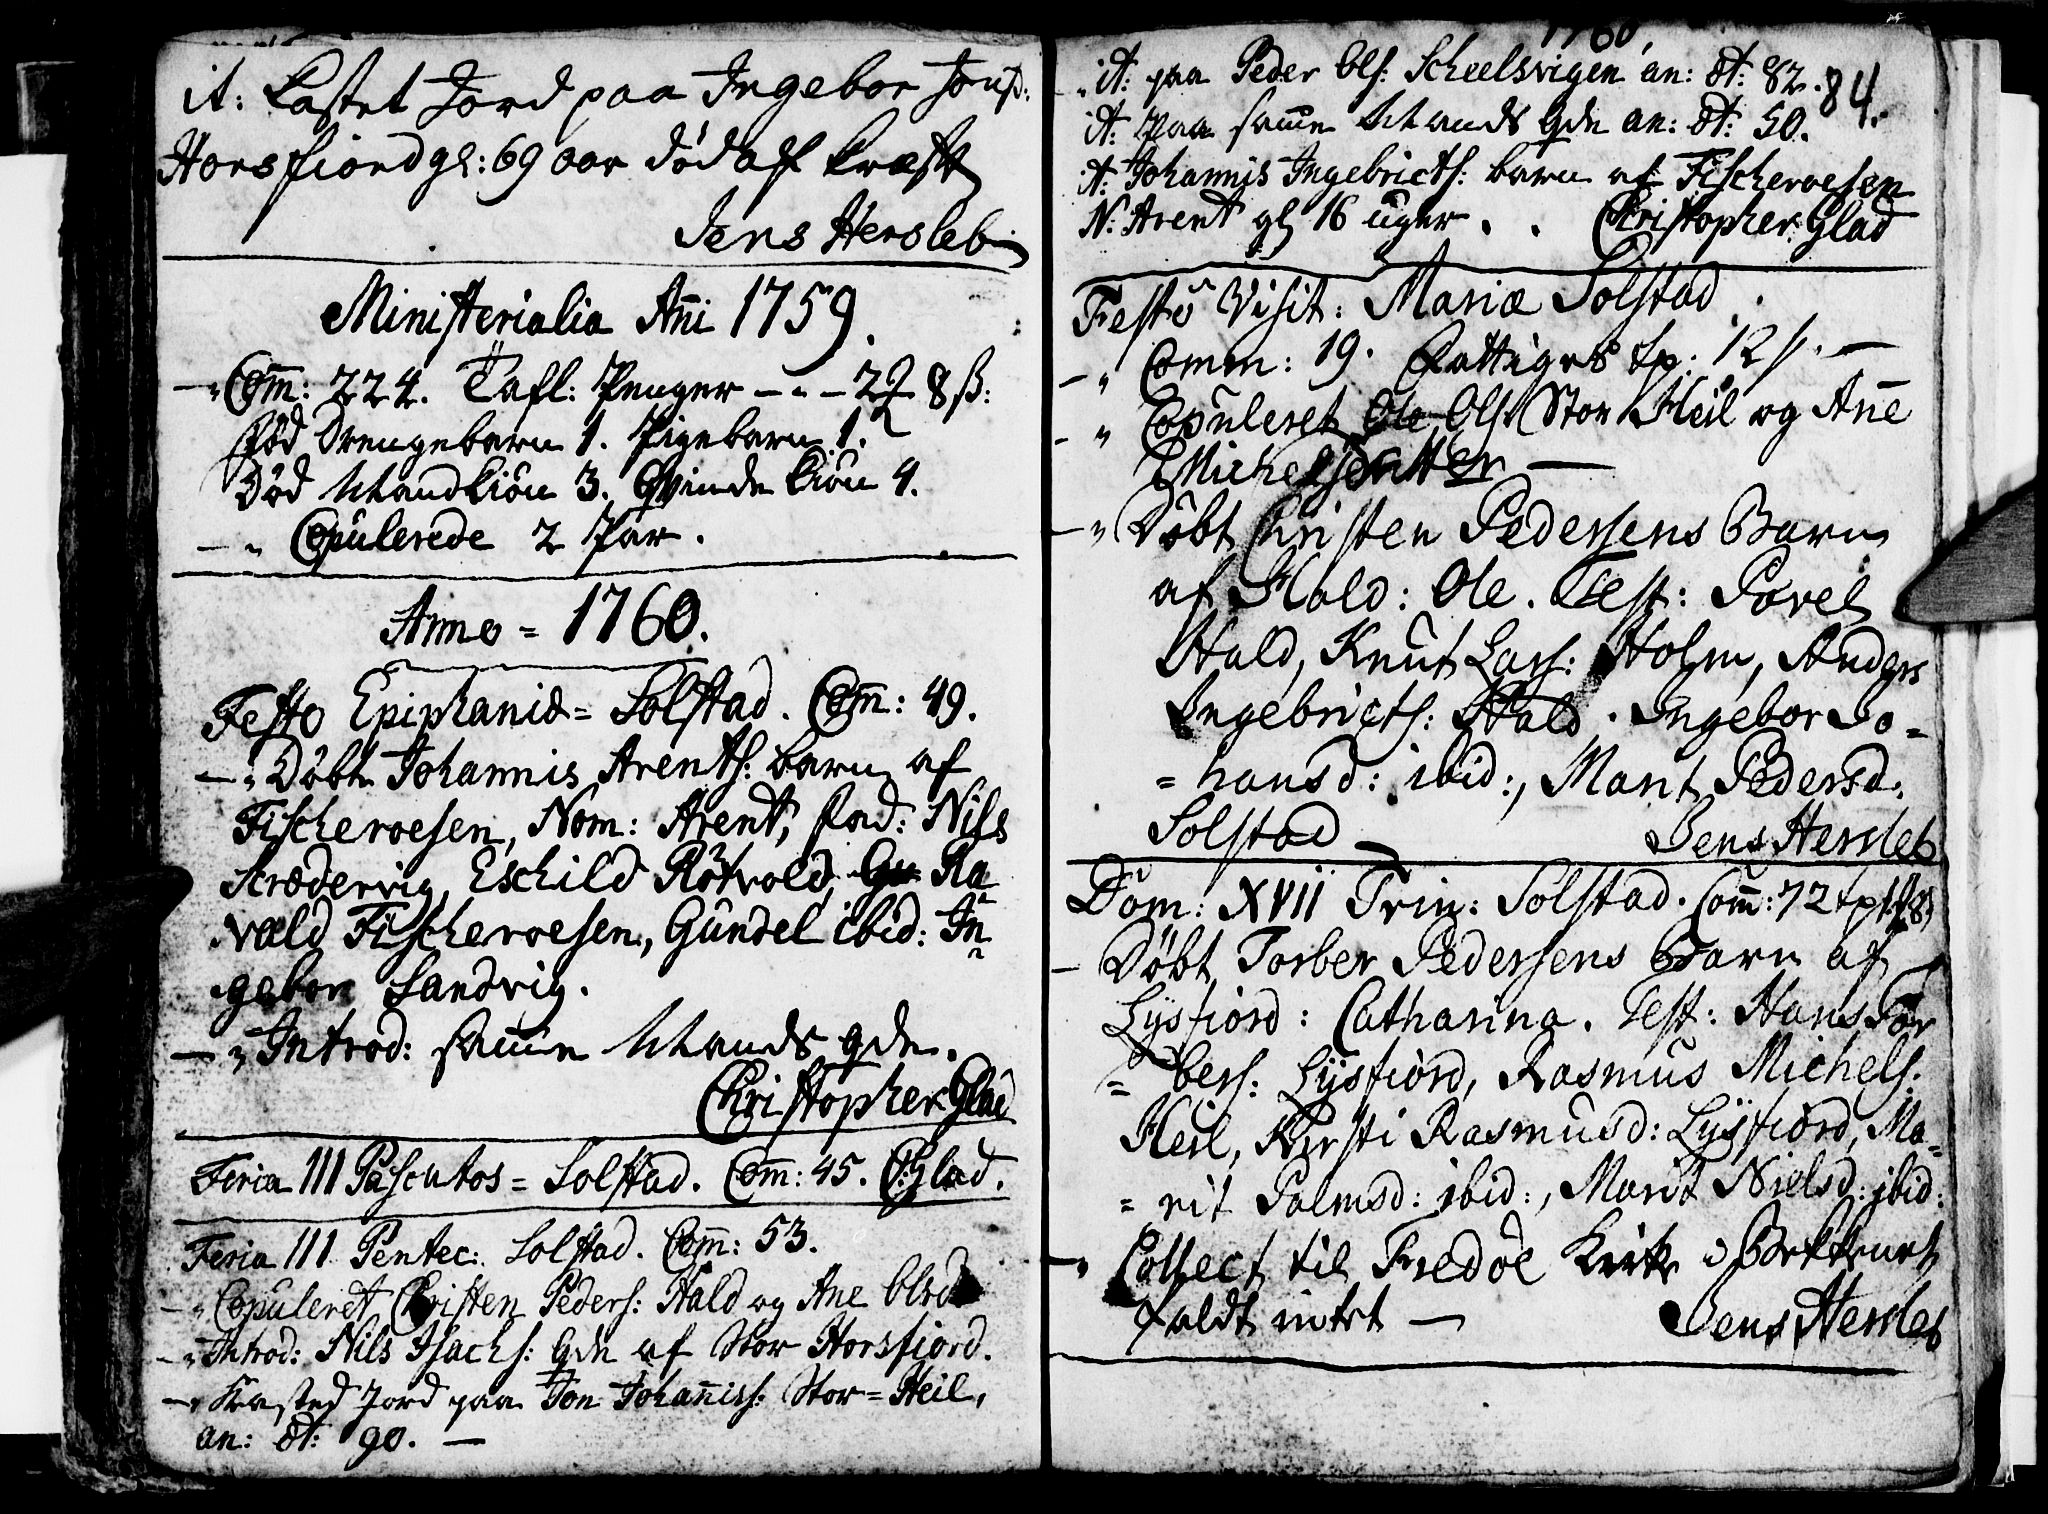 it: Kastet Jord paa Ingebor Jonß:
Horsfiord gl: 69 aar død af kræft
Jens Hersleb
Ministerialia Añi 1759.
-" Com̃: 224. Tafl: Penger - - - 2 8 ß:
fød Drengebarn 1. Pigebarn 1.
Død Mandkiön 3. Qvinde kiön 4.
- " Copulerede 2 Par.
Anno = 1760.
Festo Epiphaniæ = Solstad. Com̃: 49.
- " Döbt Johannis Arents: barn af
Fischeroesen, Nom: Arent, fad: Nils
Scrædervig, Eschild Rötvold, Ra
væld Fischeroesen, Gundel ibid: In
gebor Sandvig.
- " Introd: sam̃e Mands qde.
Christopher Glad
Feria III Paschatos = Solstad. Com̃: 45. C: Glad.
Feria III Pentec: Solstad. Com̃: 53.
- " Copuleret Christen Peders: Hald og Ane Olsd
- " Introd: Nils Isachs: qde af Stor Horsfiord.
- " Kasted Jord paa Jon Johañis: Stor = Heil,
an: æt: 90. -
1760.
it: paa Peder Ols: Scheelsvigen an: æt: 82.
84.
it: paa sam̃e Mands qde an: æt: 50.
it: Johannis Ingebricts: barn af Fischeroesen
N: Arent gl 16 uger. . Christopher Glad
Festo Visit: Mariæ Solstad.
- " Comm: 19. Fattiges tp: 12 ß. -
- " Copuleret Ole Ols: Stor Heil og Añe
Michelsdatter -
- " Döbt Christen Pedersens Barn
af Hald: Ole. Test: Povel
Hald, Knut Lars: Holm, Anders
Ingebricts: Hald. Ingebor Jo-
= hansd: ibid:, Marit Pedersd:
Solstad - Jens Hersleb
Dom: XVII Trin: Solstad. Com̃: 72 tp:
- Döbt Torber Pedersens Barn af
Lysfiord: Catharina. Test: Hans Tor
= bers: Lysfiord, Rasmus Michels:
Heil, Kirsti Rasmusd: Lysfiord, Ma-
= rit Palmsd: ibid:, Marit Nielsd: ibid:
- " Collect til Fredöe Kirke
faldt intet - Jens Hersleb